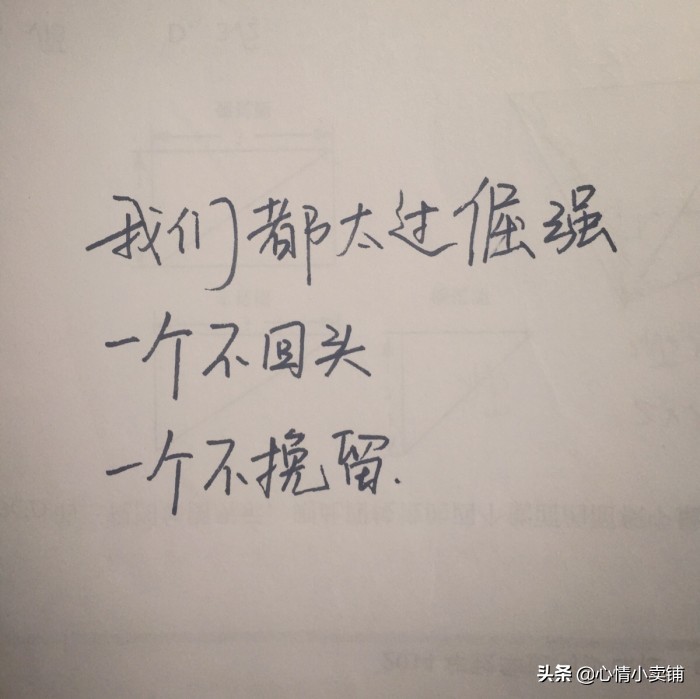 我们都太过倔强
一个不回头
一个不挽留.
头条 @心情小卖铺